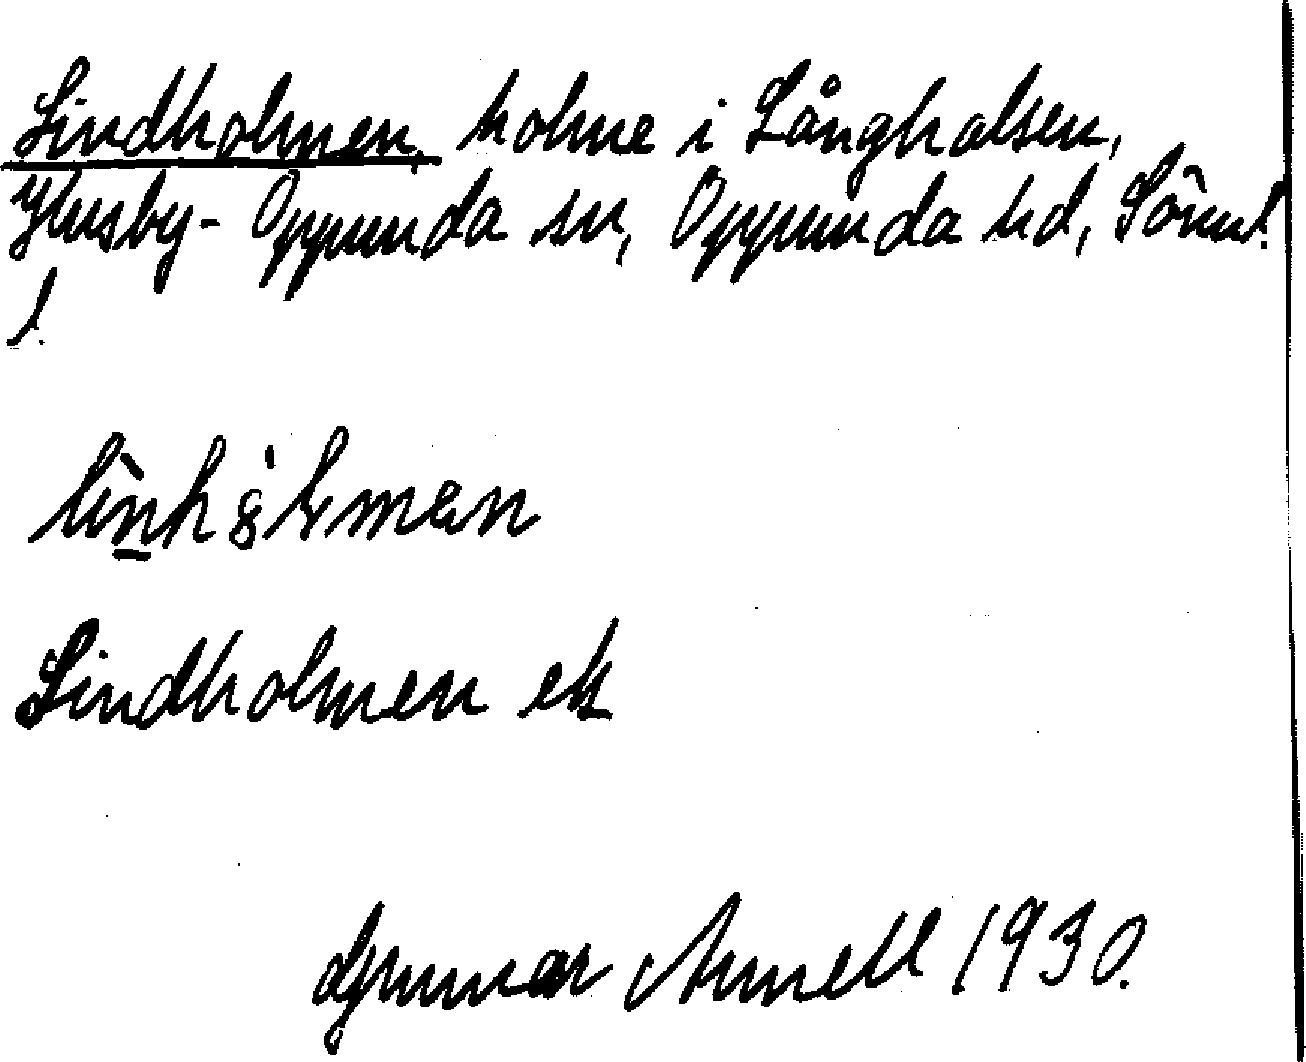 Lindholmen, holme i Långhalsen,
Husby-Oppunda sn, Oppunda hd, Sörml.
l.
Lindholmen ek
Gunnar Arnell 1930.